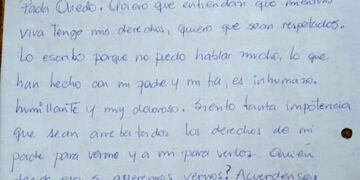 Paola Oviedo. Quiero que entiendan que mientras
viva tengo mis derechos, quiero que sean respetados.
Lo escribo porque no puedo hablar mucho, lo que
han hecho con mi padre y mi tía, es inhumano,
humillante y muy doloroso. Siento tanta impotencia
que sean arrebatados los derechos de mi
padre para verme y a mi para verlos. Quién
si queremos vernos? Acuérdense